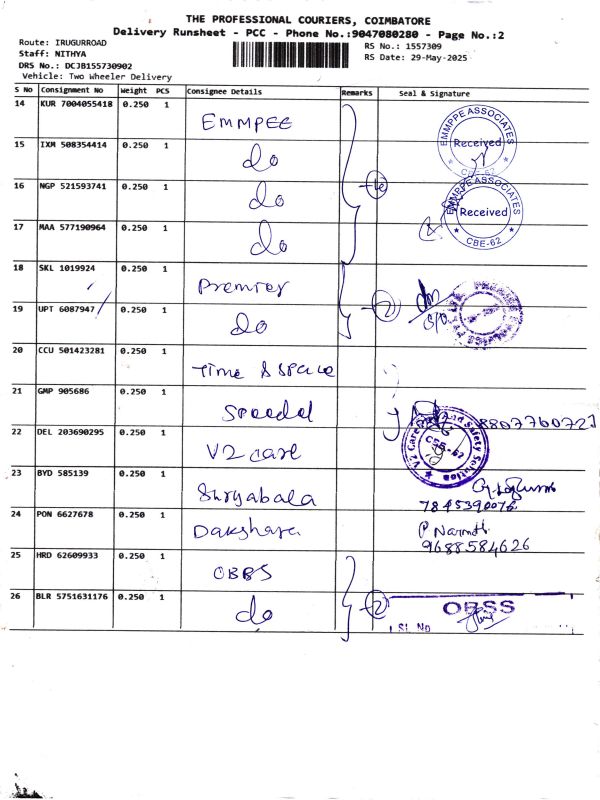 THE PROFESSIONAL COURIERS, COIMBATORE
Delivery Runsheet - PCC - Phone No.:9047080280 - Page No.:2
Route: IRUGURROAD
RS No.: 1557309
Staff: NITHYA
RS Date: 29-May-2025
DRS No.: DCJB155730902
Vehicle: Two Wheeler Delivery
S No Consignment No Weight PCS Consignee Details Remarks Seal & Signature
14 KUR 7004055418 0.250 1 EMMPEE
EMMPPE ASSOCIATES Received CBE-62
15 IXM 508354414 0.250 1 do
16 NGP 521593741 0.250 1 do
EMMPPE ASSOCIATES Received CBE-62
17 MAA 577190964 0.250 1 do
18 SKL 1019924 0.250 1 Premier
19 UPT 6087947 0.250 1 do 2
20 CCU 501423281 0.250 1 Time & space
21 GMP 905686 0.250 1 Speedel 8807760723
22 DEL 203690295 0.250 1 V2 care
V2 Care and Safety Solution CBE-62
23 BYD 585139 0.250 1 Suryabala
7845390076
24 PON 6627678 0.250 1 Dakshara
9688584626
25 HRD 62609933 0.250 1 OBBS
26 BLR 5751631176 0.250 1 do 2
OBSS
Sl. No